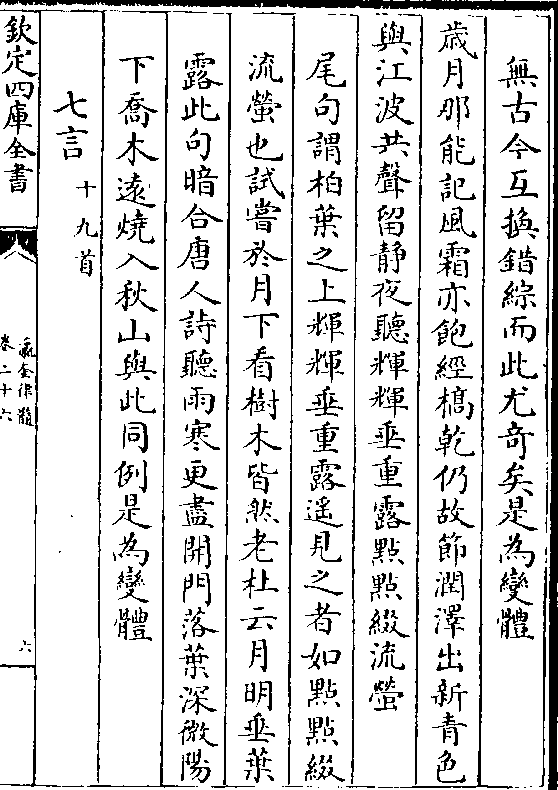 無古今互換錯綜而此尤竒矣是為變體
歳月那能記風霜亦飽經槁乾仍故節潤澤出新青色
與江波共聲留静夜聽輝輝垂重露點點綴流螢
尾句謂柏葉之上輝輝垂重露遥見之者如點點綴
流螢也試嘗於月下看樹木皆然老杜云月明垂葉
露此句暗合唐人詩聽雨寒更盡開門落葉深微陽
下喬木遠燒入秋山與此同例是為變體
七言十九首
欽定四庫全書
瀛奎律髓
卷二十六
六